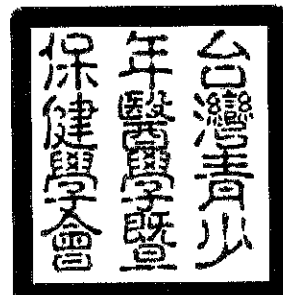 台灣青少
年醫學暨
保健學會